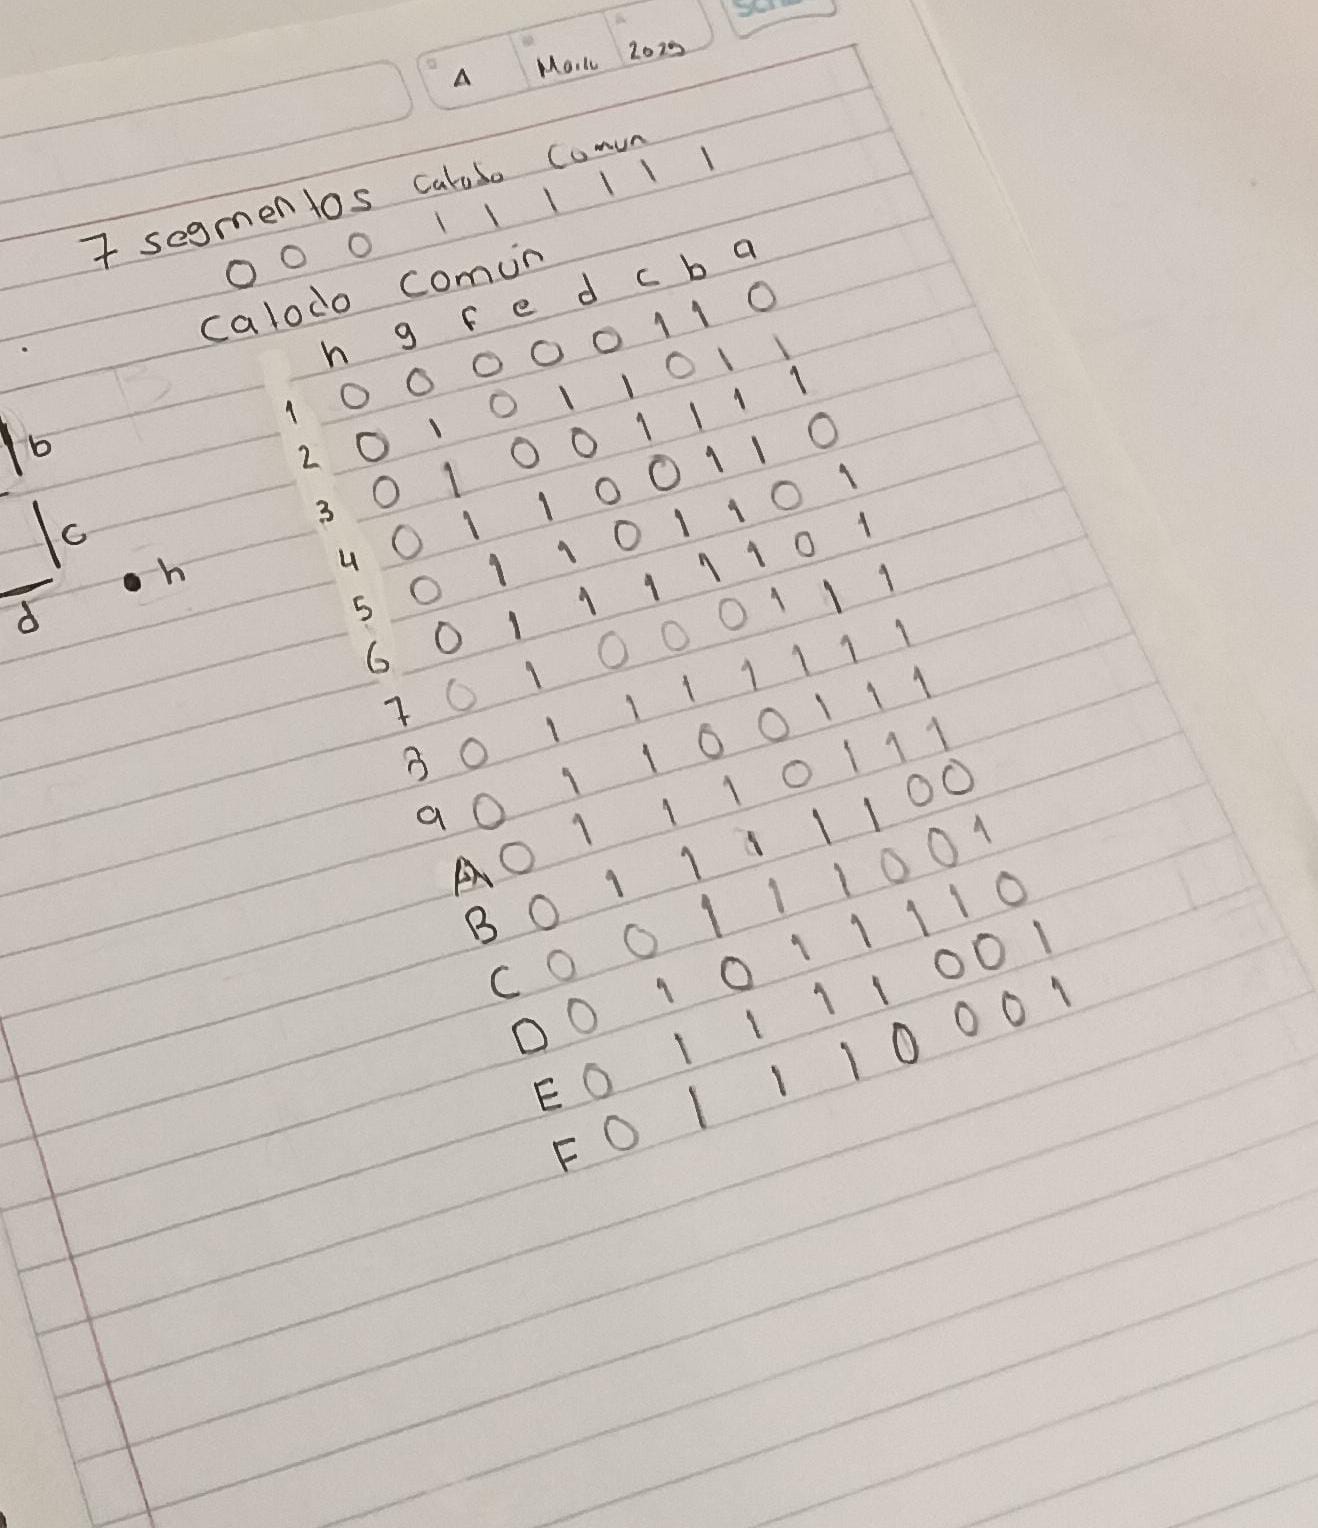 4 2025
7 segmentos catodo comun
0 0 0 1 1 1 1 1 1
catodo común
h g f e d c b a
1 0 0 0 0 0 1 1 0
2 0 1 0 1 1 0 1 1
b
3 0 1 0 0 1 1 1 1
4 0 1 1 0 0 1 1 0
c
5 0 1 1 0 1 1 0 1
h
d
6 0 1 1 1 1 1 0 1
7 0 1 0 0 0 1 1 1
8 0 1 1 1 1 1 1 1
9 0 1 1 0 0 1 1 1
A 0 1 1 1 0 1 1 1
B 0 1 1 1 1 1 0 0
C 0 0 1 1 1 0 0 1
D 0 1 0 1 1 1 1 0
E 0 1 1 1 1 0 0 1
F 0 1 1 1 0 0 0 1